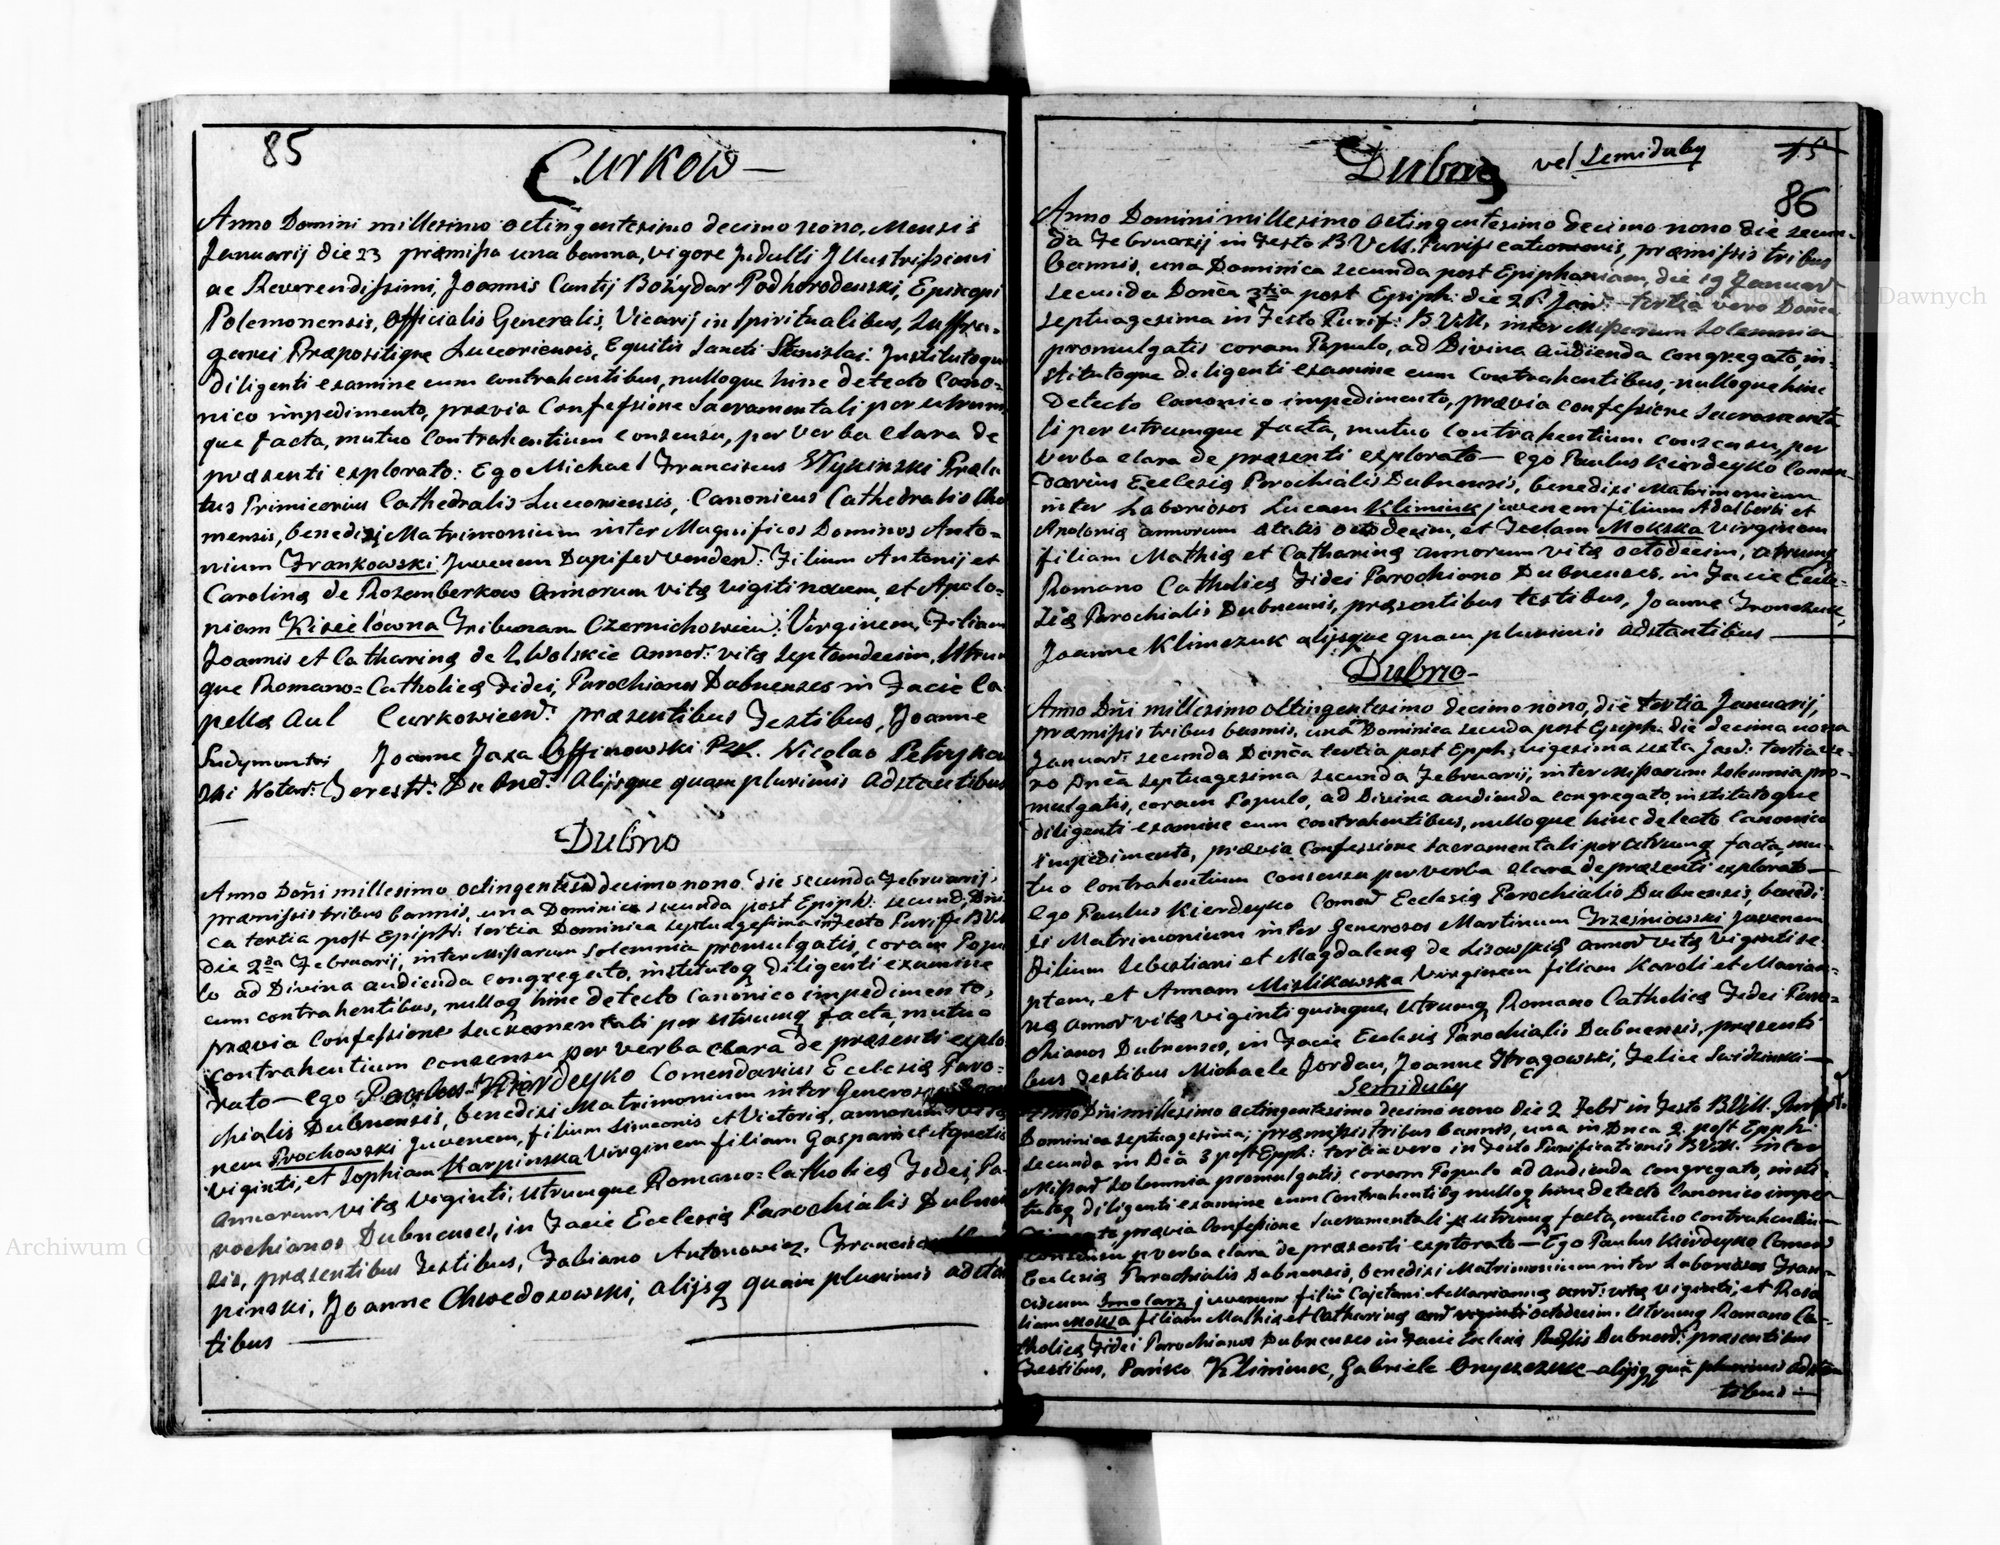 85
Curkow —
Anno Domini millesimo octingentesimo decimo nono, Mensis
Januarij die 23 præmissa una banna, vigore Indulti Illustrissimi
ac Reverendissimi, Joannis Cantij Bożydar Podhorodenski, Episcopi
Polemonensis, Officialis Generalis, Vicarij in Spiritualibus, Suffra-
ganei Præpositique Luceoriensis, Equitis Sancti Stanislai. Institutoque
diligenti examine cum contrahentibus, nulloque hinc detecto Cano-
nico impedimento, prævia Confessione Sacramentali per utrum
que facta, mutuo Contrahentium consensu, per verba clara de
præsenti explorato: Ego Michael Franciscus Præla-
tus Primicerius Cathedralis Luceoriensis, Canonicus Cathedralis
mensis, benedixi Matrimonium inter Magnificos Dominos Anto-
nium Frankowski Juvenem Dapifer Venden: Filium Antonij et
Carolinę de Rozemberkow Annorum vitę vigiti novem, et Apolo-
niam Kisielówna Tribunam Czernichovien: Virginem, Filiam
Joannis et Catharinę de Wolskie annor: vitę septemdecim, Utrum
que Romano=Catholicę Fidei, Parochianos Dubnenses in Facie Ca-
pellę Aul Curkowiecen: præsentibus Testibus, Joanne
Joanne Jaxa Nicolao
ski Notar: Alijsque quam plurimis Adstantibus
Dubno
Anno Dn̄i millesimo octingentesimo decimo nono die secunda Februarij,
præmissis tribus bannis, una Dominica secunda post Epiph: secund: Dn̄i
ca tertia post Epiph: tertia Dominica septuagesima in Festo Purif: BVM
die 2da Februarij, inter Missarum solemnia promulgatis, coram Popu
lo ad Divina audienda congregato, institutoq diligenti examine
cum contrahentibus, nulloq hinc detecto Canonico impedimento,
prævia Confessione Sacramentali per utrumq facta, mutuo
contrahentium consensu per verba clara de præsenti explo
rato — ego Paulus Kierdeyko Comendarius Ecclesię Paro-
chialis Dubnensis, benedixi Matrimonium inter Generosos
nem Prochowski Juvenem, filium Simeonis et Victorię, annorum
viginti, et Sophiam Karpinska Virginem filiam Gaspari et Agnetis
Annorum vitę viginti, Utrumque Romano=Catholicę Fidei, Pa-
rochianos Dubnenses, in Facie Ecclesię Parochialis Dubnen
sis, præsentibus Testibus, Fabiano Antonowicz, Francisco
pinski, Joanne Chwedosowski, alijsq quam plurimis adstan
tibus —
Dubno vel Semiduby
15
86
Anno Domini millesimo octingentesimo decimo nono die secun-
da Februarij in Festo B V M. Purificationis, præmissis tribus
bannis, una Dominica secunda post Epiphaniam, die 19 Januar
secunda Don̄ca 3tia post Epiph: die 26 Jan: tertia vero Don̄ca
septuagesima in Festo Purif: B.V.M. inter Missarum solemnia
promulgatis coram Populo, ad Divina audienda congregato, in-
stitutoque diligenti examine cum Contrahentibus, nulloque hinc
detecto Canonico impedimento, prævia confessione Sacramenta
li per utrumque facta, mutuo contrahentium consensu, per
Verba clara de præsenti explorato — ego Paulus Kierdeyko Comen-
darius Ecclesię Parochialis Dubnensis, benedixi Matrimonium
inter Laboriosos Lucam Klimiuk juvenem filium Adalberti et
Apolonię annorum ętatis octodecim, et Teclam Mokska virginem
filiam Mathię et Catharinę annorum vitę octodecim, utrumq
Romano Catholicę Fidei Parochiano Dubnenses, in Facie Eccle-
się Parochialis Dubnensis, præsentibus testibus, Joanne
Joanne Klimczuk alijsque quam plurimis adstantibus —
Dubno-
Anno Dn̄i millesimo octingentesimo decimo nono, die tertia Januarij,
præmissis tribus bannis, una Dominica secunda post Epiph: die decima nona
Januar: secunda Don̄ca tertia post Epph: vigesima sexta Janr: tertia ve-
ro Dn̄ca septuagesima secunda Februarij, inter Missarum solemnia pro-
mulgatis, coram Populo, ad Divina audienda congregato, institutoque
diligenti examine cum contrahentibus, nulloque hinc detecto Canonico
impedimento, prævia Confessione Sacramentali per utrumq facta, mu-
tuo contrahentium consensu per verba clara de præsenti explorato —
Ego Paulus Kierdeyko Comend Ecclesię Parochialis Dubnensis, benedi-
xi Matrimonium inter Generosos Martinum Juvenem
Filium Sebestiani et Magdalenę de Lisowskię annor vitę viginti se-
ptem, et Annam Mislikowska Virginem filiam Karoli et Marian-
nę annor vitę viginti quinque, Utrumq Romano Catholicę Fidei Paro-
chianos Dubnenses, in Facie Ecclesię Parochialis Dubnensis, præsenti
bus Testibus Michaele Jordan, Joanne Felice
Semiduby
Anno Dn̄i millesimo octingentesimo decimo nono die 2 Febr in Festo B.V.M. Purif.
Dominica septuagesima, præmissis tribus bannis, una in Dn̄ca 2 post Epph:
secunda in Dn̄ca 3 post Epph: tertia vero in Festo Purificationis B.V.M. inter
Missar solemnia promulgatis, coram Populo ad audienda congregato, insti-
tutoq diligenti examine cum Contrahentibq nulloq hinc detecto Canonico impe-
prævia Confessione Sacramentali p utrumq facta, mutuo contrahentiu-
consensu p verba clara de præsenti explorato — Ego Paulus Kierdeyko Comend
Ecclesię Parochialis Dubnensis, benedixi Matrimonium inter Laboriosos Fran-
ciscum Smolarz juvenem filiū Cajetani et Mariannę annr: vitę viginti, et Rosa
liam Moksa filiam Mathię et Catharinę octodecim. Utrumq Romano Ca-
tholicę Fidei Parochianos Dubnenses in Facie Ecclesię Dubnen: præsentibus
Testibus, Klimiuk, Gabriele alijsq quā plurimis adstan
tibus —
Archiwum Główne Akt Dawnych
Archiwum Główne Akt Dawnych